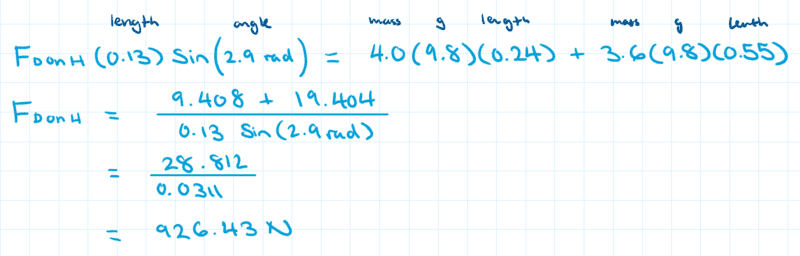 length angle mass g length mass g length
F D on H (0.13) Sin(2.9 rad) = 4.0(9.8)(0.24) + 3.6(9.8)(0.55)
F D on H = 9.408 + 19.404
0.13 Sin(2.9 rad)
= 28.812
0.0311
= 926.43 N